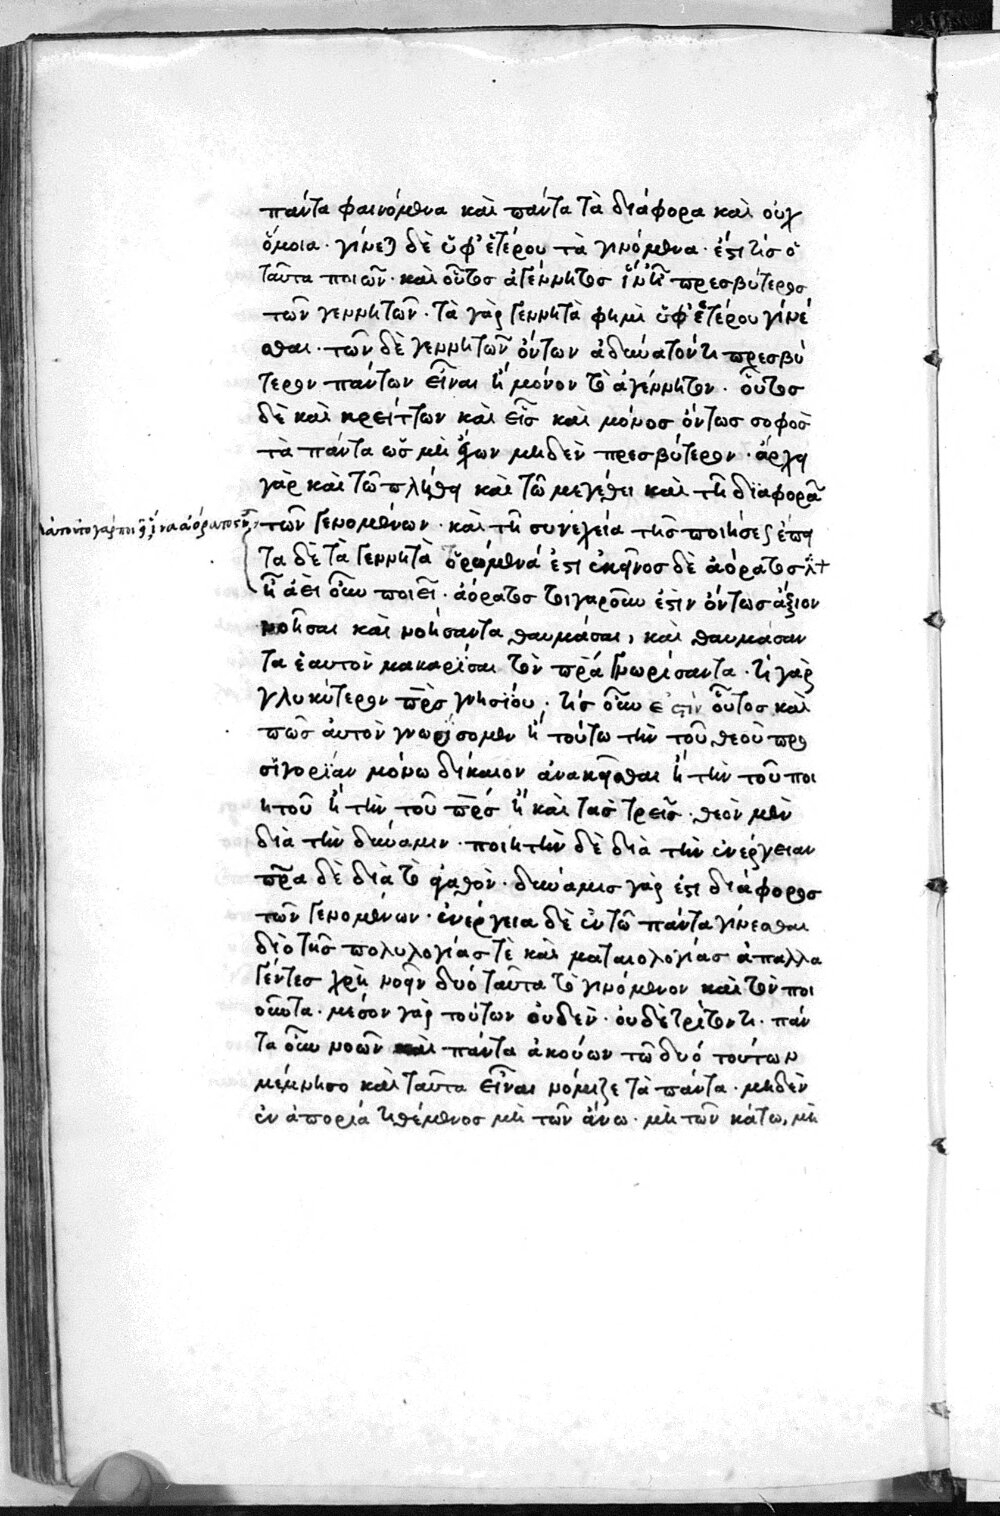 πάντα φαινόμενα καὶ πάντα τὰ διάφορα καὶ οὐχ
ὅμοια· γίνεται δὲ ὑφ' ἑτέρου τὰ γινόμενα· ἔστι τίς ὁ
ταῦτα ποιῶν· καὶ οὗτος ἀγέννητος ἵν' ᾖ πρεσβύτερος
τῶν γεννητῶν· τὰ γὰρ γεννητὰ φημὶ ὑφ' ἑτέρου γίνε
σθαι· τῶν δὲ γεννητῶν ὄντων ἀδύνατόν τι πρεσβύ
τερον πάντων εἶναι ἢ μόνον τὸ ἀγέννητον· οὗτος
δὲ καὶ κρείττων καὶ εἷς καὶ μόνος ὄντως σοφὸς
τὰ πάντα ὡς μὴ ἔχων μηδὲν πρεσβύτερον· ἄρχει
γὰρ καὶ τῶ πλήθει καὶ τῶ μεγέθει καὶ τῆ διαφορᾶ
τῶν γενομένων· καὶ τῆ συνεχεία τῆς ποιήσεως ἔπει
διὰ τοῦτο γὰρ ποιεῖ, ἵνα ἀόρατος ἦ,
τα δὲ τὰ γεννητὰ ὁρώμενά ἐστι ἐκεῖνος δὲ ἀόρατος
ἀεὶ οὖν ποιεῖ· ἀόρατος τοιγαροῦν ἐστιν ὄντως ἄξιον
νοῆσαι καὶ νοήσαντα θαυμάσαι, καὶ θαυμάσαν
τα ἑαυτὸν μακαρίσαι τὸν πρα γνωρίσαντα· τί γὰρ
γλυκύτερον πρς γνησίου· τίς οὖν ἐστὶν οὗτος καὶ
πῶς αὐτὸν γνωρίσομεν ἢ τούτω τὴν τοῦ θεοῦ προ
σηγορίαν μόνω δίκαιον ἀνακεῖσθαι ἢ τὴν τοῦ ποι
ητοῦ ἢ τὴν τοῦ πρς ἢ καὶ τὰς τρεῖς· θεὸν μὲν
διὰ τὴν δύναμιν· ποιητὴν δὲ διὰ τὴν ἐνέργειαν
πρα δὲ διὰ τὸ ἀγαθὸν· δύναμις γάρ ἐστι διάφορος
τῶν γενομένων· ἐνέργεια δὲ ἐν τῶ πάντα γίνεσθαι
διὸ τῆς πολυλογίας τὲ καὶ ματαιολογίας ἀπαλλα
γέντες χρὴ νοεῖν δύο ταῦτα τὸ γινόμενον καὶ τὸν ποι
οῦντα· μέσον γὰρ τούτων οὐδὲν· οὐδὲ τρίτον τι· πάν
τα οὖν νοῶν καὶ πάντα ἀκούων τῶ δύο τούτων
μέμνησο καὶ ταῦτα εἶναι νόμιζε τὰ πάντα· μηδὲν
ἐν ἀπορία τιθέμενος μὴ τῶν ἄνω· μὴ τῶν κάτω, μὴ